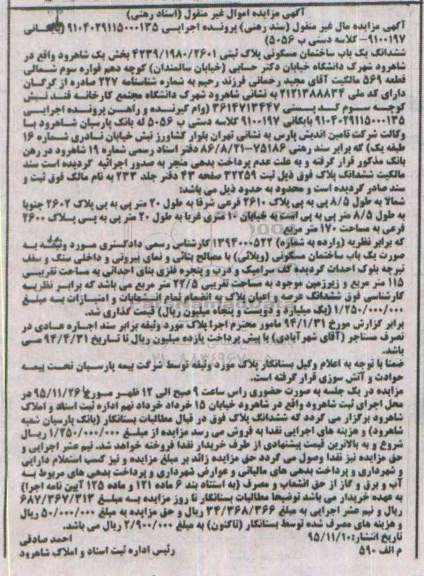 آگهی مزایده اموال غیر منقول (اسناد رهنی)
آگهی مزایده مال غیر منقول (سند رهنی) پرونده اجرایی ۹۱۰۴۰۲۹۱۱۵۰۰۰۱۳۵ بایگانی
۹۱۰۰۱۹۷– کلاسه دستی ب ۵۰۵۶)
ششدانگ یک باب ساختمان مسکونی پلاک ثبتی ۴۲۳۹/۱۹۸۰/۲۶۰۱ بخش یک شاهرود واقع در
شاهرود شهرک دانشگاه خیابان دکتر حسابی (خیابان سالمندان) کوچه دهم فواره سوم شمالی
قطعه ۵۶۹ مالکیت آقای مجید رحمانی فرزند رحیم به شماره شناسنامه ۳۲۷ صادره از گرگان
دارای کد ملی ۲۱۲۱۳۸۸۸۳۴ به نشانی شاهرود شهرک دانشگاه مجتمع کارخانه قند نبش
کوچه سوم کد پستی ۳۶۱۴۷۱۳۴۴۷ (وام گیرنده و راهن) پرونده اجرایی
۹۱۰۴۰۲۹۱۱۵۰۰۰۱۳۵ بایگانی ۹۱۰۰۱۹۷ کلاسه دستی ب ۵۰۵۶ له بانک پارسیان شاهرود با
وکالت شرکت تامین اندیش پارس به نشانی تهران بلوار کشاورز نبش خیابان نادری شماره ۱۶
طبقه یک) که برابر سند رهنی ۷۵۱۸۶–۸۶/۸/۲۱ دفتر اسناد رسمی شماره ۱۹ شاهرود در رهن
بانک مذکور قرار گرفته و به علت عدم پرداخت بدهی منجر به صدور اجرائیه گردیده است سند
مالکیت ششدانگ پلاک فوق ذیل ثبت ۳۲۲۵۹ صفحه ۴۳ دفتر جلد ۲۳۳ به نام مالک فوق ثبت و
سند صادر گردیده است و محدود به حدود ذیل می باشد:
شمالا به طول ۸/۵ پی به پی پلاک ۲۶۱۰ فرعی شرقا به طول ۲۰ متر پی به پی پلاک ۲۶۰۲ جنوبا
به طول ۸/۵ متر پی به پی است به خیابان ۱۰ متری غربا به طول ۲۰ متر پی به پی پلاک ۲۶۰۰
فرعی به مساحت ۱۷۰ متر مربع
که برابر نظریه (وارده به شماره) ۱۳۹۴۰۰۰۵۲۲ کارشناس رسمی دادگستری مورد وثیقه به
صورت یک باب ساختمان مسکونی (ویلائی) با مصالح بنائی و نمای بیرونی و داخلی سنگ و سقف
تیرچه بلوک احداث گردیده کف سرامیک و درب و پنجره فلزی بنای احداثی به مساحت تقریبی
۱۱۵ متر مربع و زیرزمین موجود به مساحت تقریبی ۲۲/۵ متر مربع می باشد که برابر نظریه
کارشناسی فوق ششدانگ عرصه و اعیان پلاک به انضمام تمام انشعابات و امتیازات به مبلغ
۱/۲۵۰/۰۰۰/۰۰۰ (یک میلیارد و دویست و پنجاه میلیون ریال) قیمت گذاری شد.
برابر گزارش مورخ ۹۴/۱/۳۱ مامور محترم اجرا پلاک مورد وثیقه برابر سند اجاره عادی در
تصرف مستاجر (آقای شهرآبادی) با پیش پرداخت یازده میلیون ریال تا تاریخ ۹۴/۴/۳۱ می
باشد.
ضمنا با توجه به اعلام وکیل بستانکار پلاک مورد وثیقه توسط شرکت بیمه پارسیان تحت بیمه
حوادث و آتش سوزی قرار گرفته است.
مزایده در یک جلسه به صورت حضوری راس ساعت ۹ صبح الی ۱۲ ظهر مورخ ۹۵/۱۱/۲۶ در
محل اجرای ثبت شاهرود واقع در شاهرود خیابان ۱۵ خرداد خرداد نهم اداره ثبت اسناد و املاک
شاهرود برگزار می گردد که ششدانگ پلاک فوق در قبال مطالبات بستانکار (بانک پارسیان شعبه
شاهرود) و هزینه های اجرایی نقدا به فروش می رسد مزایده از مبلغ ۱/۲۵۰/۰۰۰/۰۰۰ ریال
شروع و به بالاترین قیمت پیشنهادی از طرف خریدار نقدا فروخته خواهد شد. نیم عشر اجرایی و
حق مزایده نیز نقدا وصول می گردد حق مزایده زائد بر مبلغ مزایده و نیز کسب استعلام دارایی
و شهرداری و پرداخت بدهی های مالیاتی و عوارض شهرداری و پرداخت بدهی های مربوط به
آب و برق و گاز از حق انشعاب و مصرف (به استناد بند ۶ ماده ۱۲۱ و ماده ۱۲۵ آیین نامه اجرا)
به عهده خریدار می باشد توضیحا مطالبات بستانکار تا روز مزایده به مبلغ ۶۸۷/۳۶۷/۳۱۳
ریال و نیم عشر اجرایی به مبلغ ۳۴/۳۶۸/۳۶۶ ریال و حق مزایده به مبلغ ۵۰/۰۰۰/۰۰۰ ریال
و هزینه های مصرف شده توسط بستانکار (تاکنون) به مبلغ ۲/۹۰۰/۰۰۰ ریال می باشد.
تاریخ انتشار: ۹۵/۱۱/۱۰ احمد صادقی
م الف ۵۹۰ رئیس اداره ثبت اسناد و املاک شاهرود